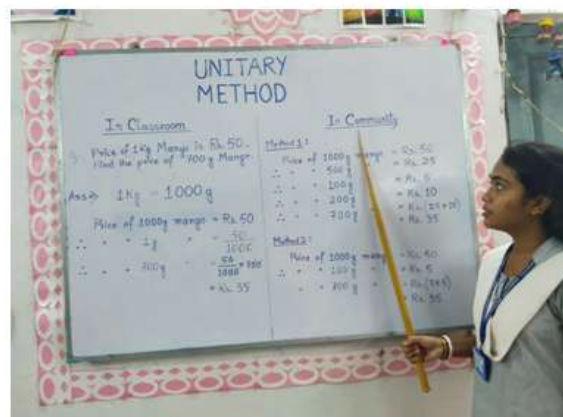 UNITARY
METHOD
In Classroom
Price of 1Kg Mango is Rs. 50.
Find the price of 700g Mango.
Ans⇒ 1Kg = 1000g
Price of 1000g mango = Rs. 50
∴ " " 1g " = 50/1000
∴ " " 700g " = 50/1000 × 700
= Rs. 35
In Community
Method 1:
Price of 1000g mango = Rs. 50
∴ " " 500g = Rs. 25
∴ " " 100g = Rs. 5
∴ " " 200g = Rs. 10
∴ " " 700g = Rs. (25+10)
= Rs. 35
Method 2:
Price of 1000g mango = Rs. 50
∴ " " 100g " = Rs. 5
" " 700g " = Rs. (7×5)
= Rs. 35